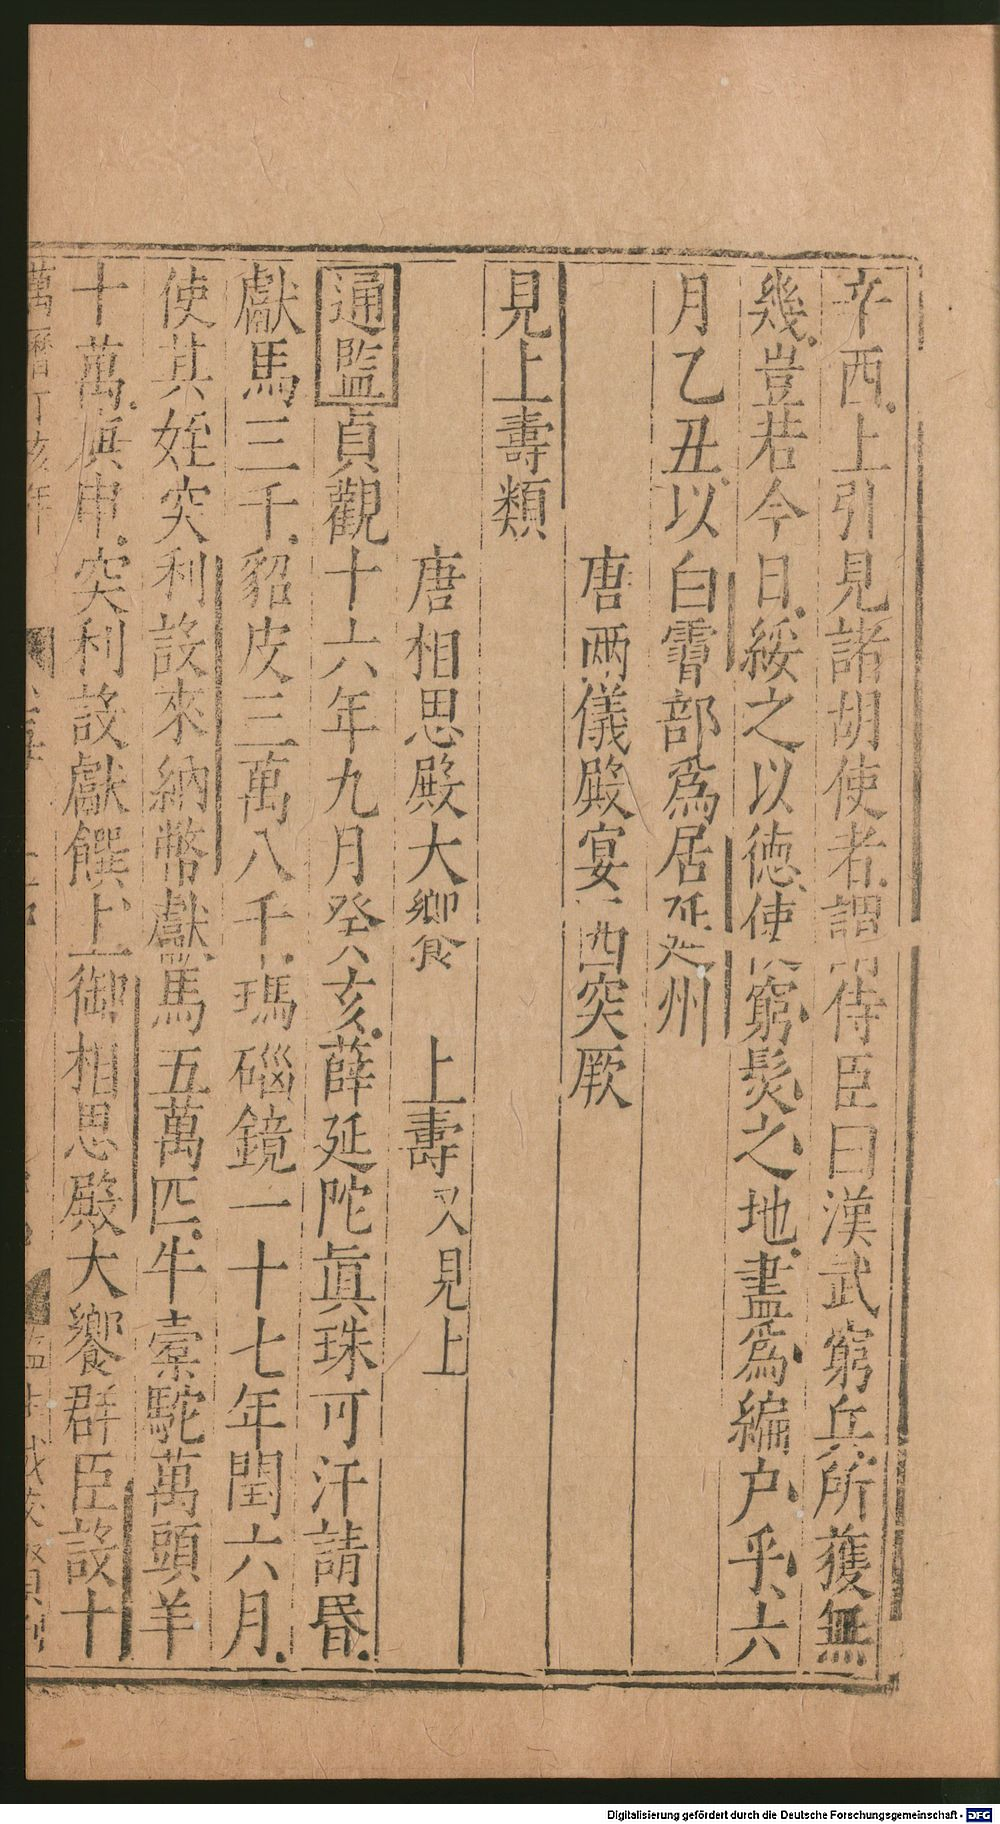 辛酉上引見諸胡使者謂侍臣曰漢武窮兵所獲無
幾豈若今日綏之以德使窮髮之地盡爲編户乎六
月乙丑以白霫部爲居延州
唐兩儀殿宴西突厥
見上壽類
唐相思殿大饗 上壽又見上
通監貞觀十六年九月癸亥薛延陀眞珠可汗請昬
獻馬三千貂皮三萬八千瑪碯鏡一十七年閏六月
使其姪突利設來納幣獻馬五萬匹牛橐駝萬頭羊
十萬庚申突利設獻饌上御相思殿大饗群臣設十
萬曆丁亥年
Digitalisierung gefördert durch die Deutsche Forschungsgemeinschaft - DFG